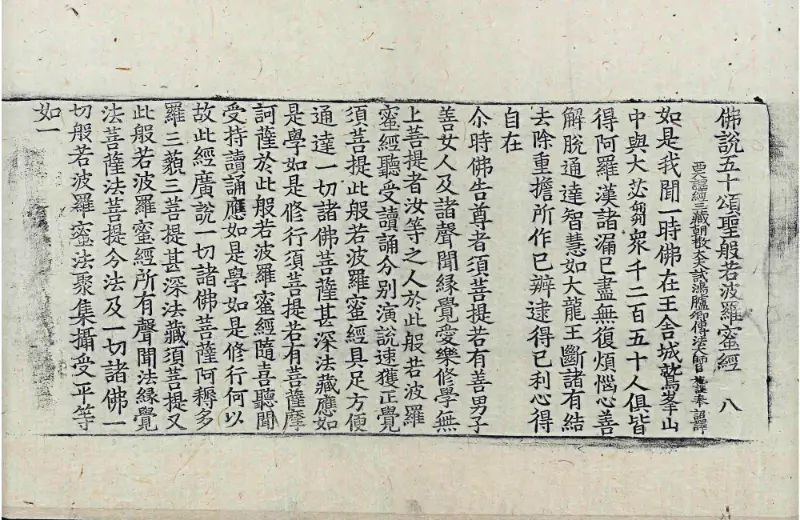 佛說五十頌聖般若波羅蜜經　八
西天譯經三藏朝散大夫試鴻臚卿傳法大師臣施護奉　詔譯
如是我聞一時佛在王舍城鷲峯山
中與大苾芻衆千二百五十人俱皆
得阿羅漢諸漏已盡無復煩惱心善
解脫通達智慧如大龍王斷諸有結
去除重擔所作已辦逮得已利心得
自在
尒時佛告尊者須菩提若有善男子
善女人及諸聲聞緣覺愛樂修學無
上菩提者汝等之人於此般若波羅
蜜經聽受讀誦分別演說速獲正覺
須菩提此般若波羅蜜經具足方便
通達一切諸佛菩薩甚深法藏應如
是學如是修行須菩提若有菩薩摩
訶薩於此般若波羅蜜經隨喜聽聞
受持讀誦應如是學如是修行何以
故此經廣說一切諸佛菩薩阿耨多
羅三藐三菩提甚深法藏須菩提又
此般若波羅蜜經所有聲聞法緣覺
法菩薩法菩提分法及一切諸佛一
切般若波羅蜜法聚集攝受平等
如一